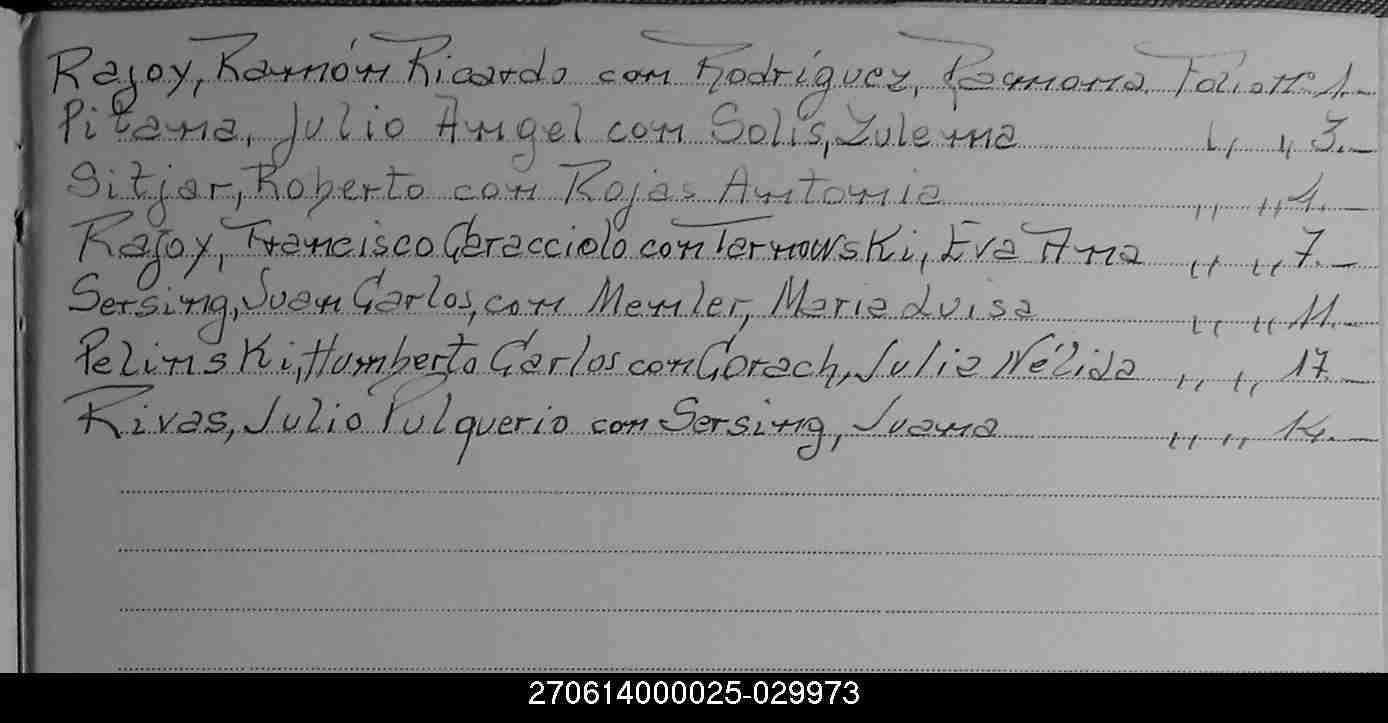 Rajoy, Ramón Ricardo con Rodríguez, Ramona Folio Nº 1.-
Pitana, Julio Angel con Solis, Zulema " " 3.-
Sitjar, Roberto con Rojas Antonia " " 1.-
Rajoy, Francisco Caracciolo con Tarnowski, Eva Ana " " 7.-
Sersing, Juan Carlos, con Memler, Maria Luisa " " 11.-
Pelinski, Humberto Carlos con Corach, Julia Nélida " " 17.-
Rivas, Julio Pulquerio con Sersing, Juana " " 14.-
270614000025-029973